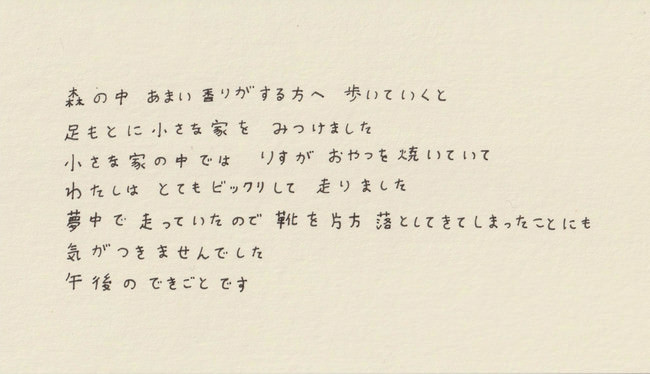 森の中 あまい香りがする方へ 歩いていくと
足もとに小さな家を みつけました
小さな家の中では りすが おやつを焼いていて
わたしは とてもビックリして 走りました
夢中で 走っていたので 靴を片方 落としてきてしまったことにも
気がつきませんでした
午後の できごとです